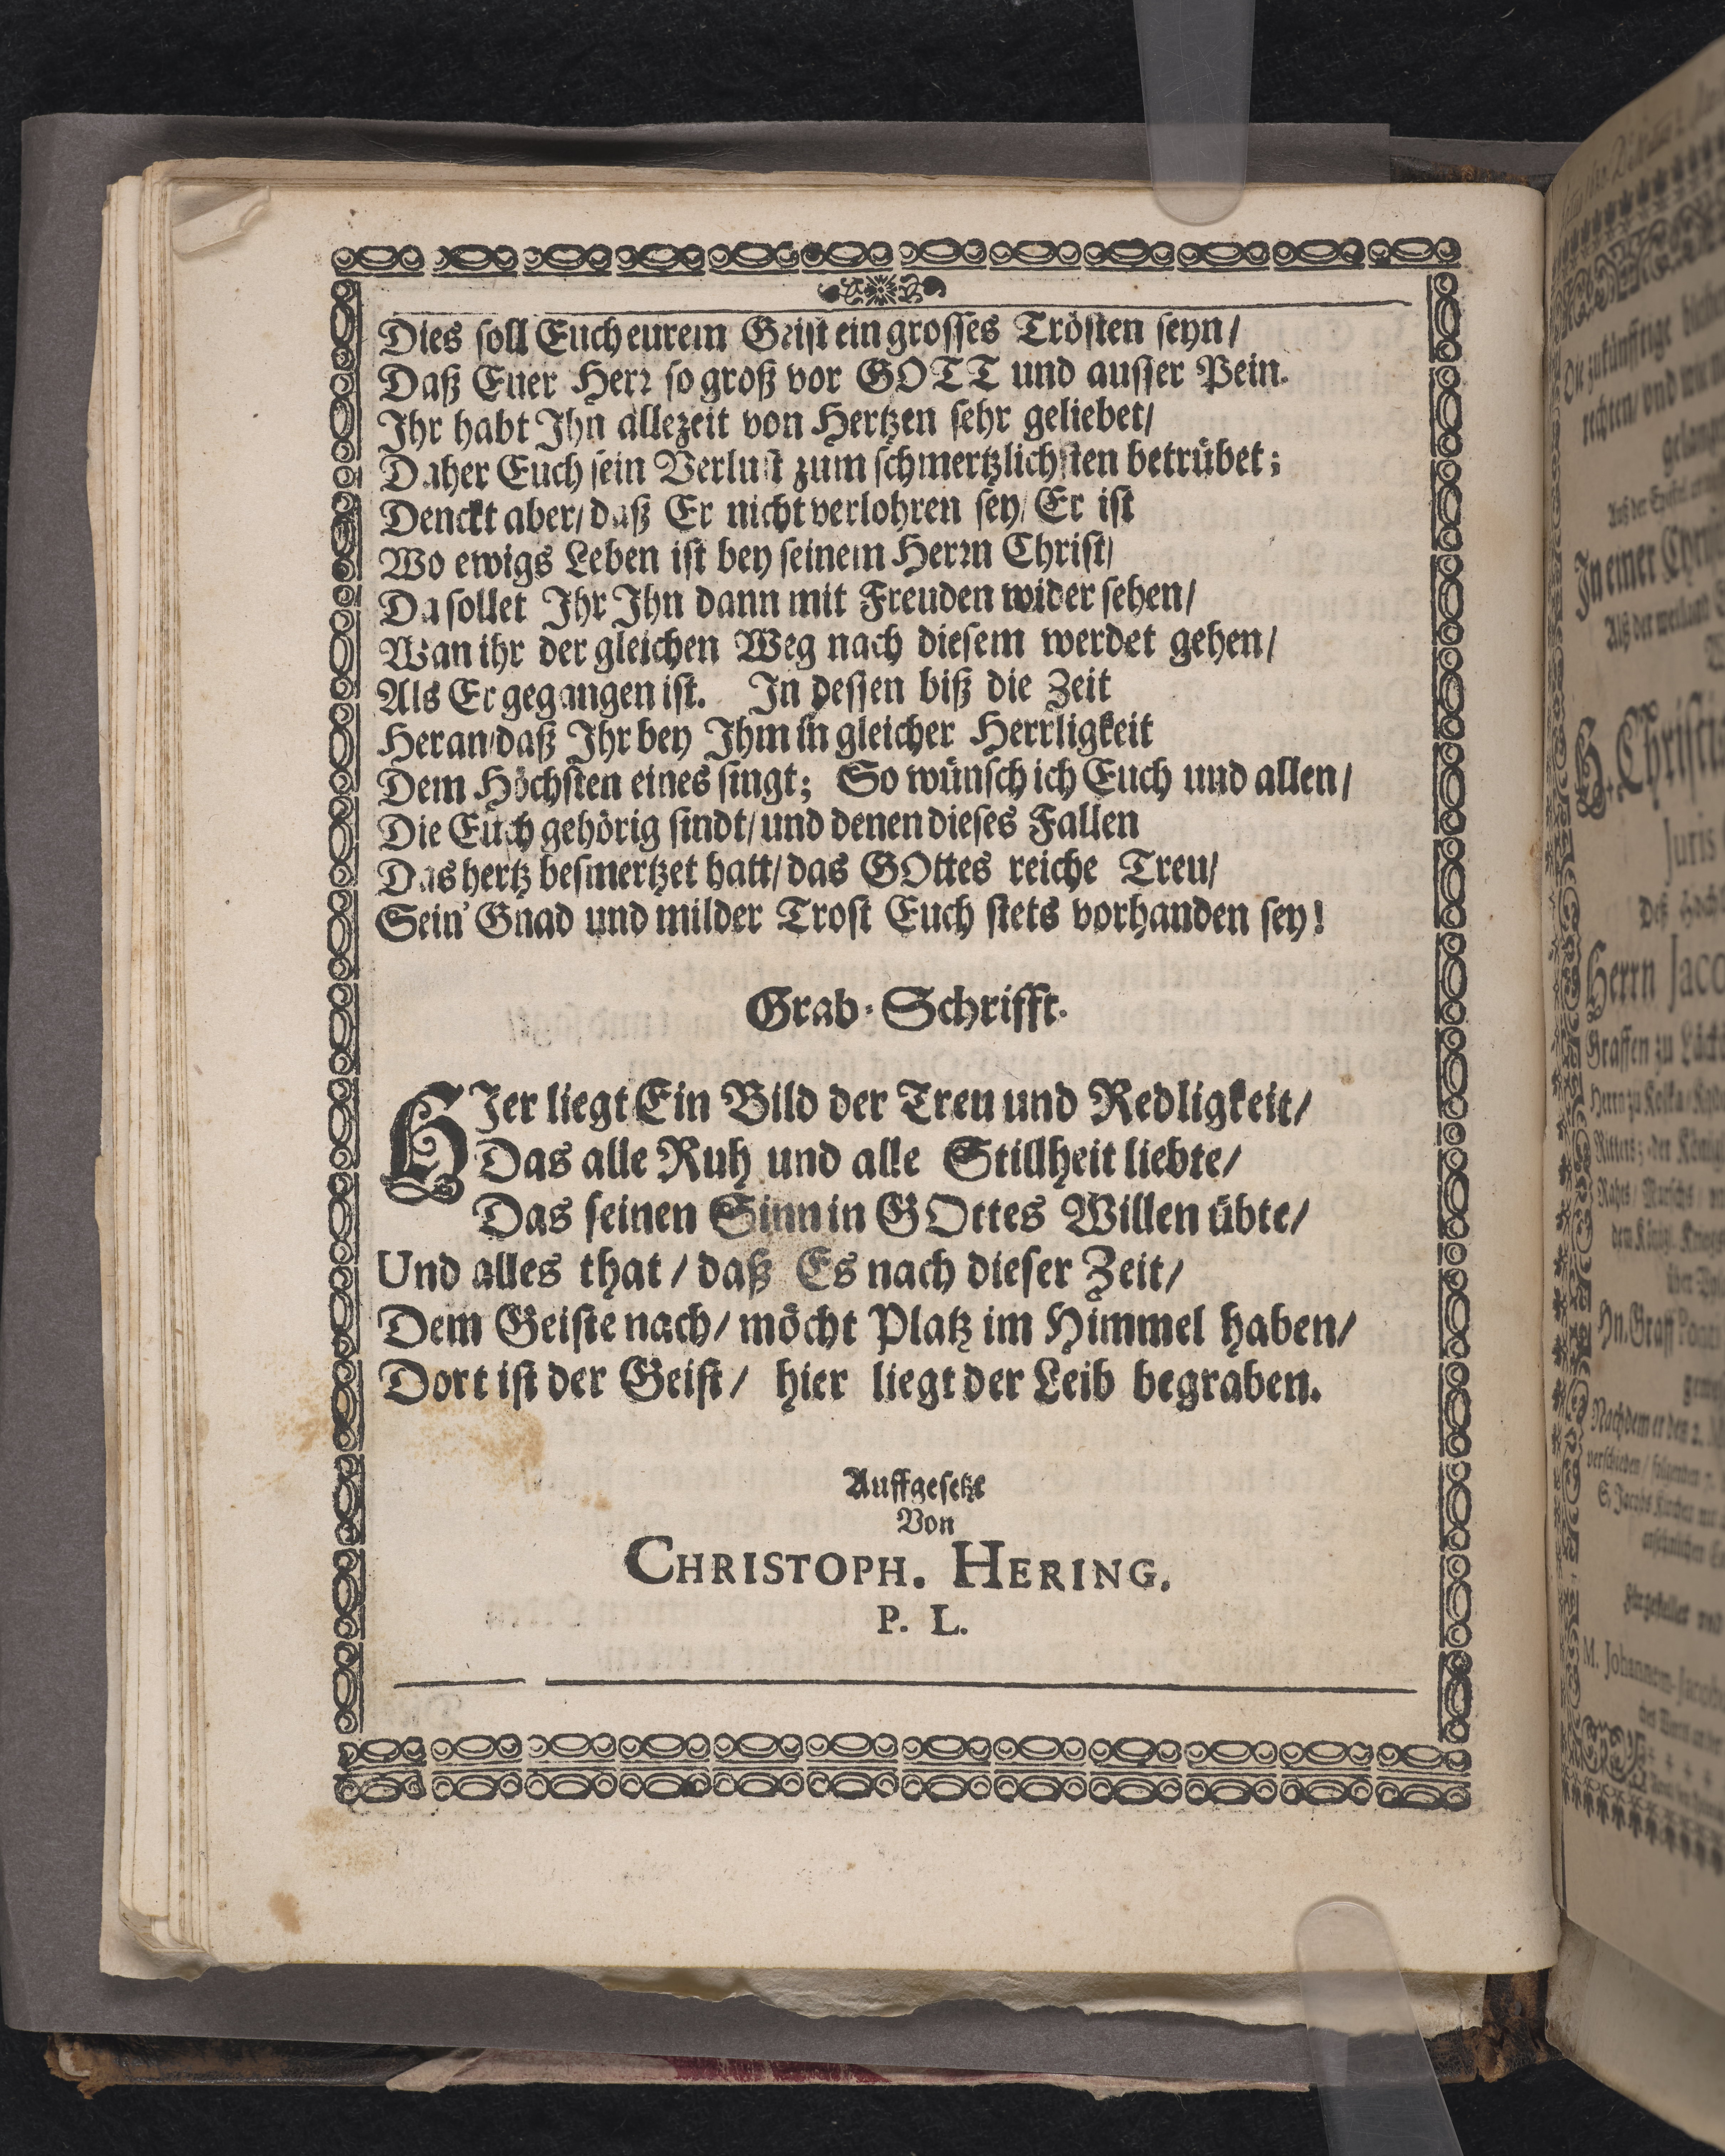 Dies soll Euch eurem Geist ein grosses Trösten seyn/
Daß Euer Herr so groß vor GOTT und ausser Pein.
Ihr habt Ihn allezeit von Hertzen sehr geliebet/
Daher Euch sein Verlust zum schmertzlichsten betrübet;
Denckt aber/ daß Er nicht verlohren sey/ Er ist
Wo ewigs Leben ist bey seinem Herrn Christ/
Da sollet Ihr Ihn dann mit Freuden wider sehen/
Wan ihr der gleichen Weg nach diesem werdet gehen/
Als Er gegangen ist. In dessen biß die Zeit
Heran/daß Ihr bey Ihm in gleicher Herrligkeit
Dem Höchsten eines singt; So wünsch ich Euch und allen/
Die Euch gehörig sindt/ und denen dieses Fallen
Das hertz besmertzet hatt/ das GOttes reiche Treu/
Sein' Gnad und milder Trost Euch stets vorhanden sey!
Grab-Schrifft.
HIer liegt Ein Bild der Treu und Redligkeit/
Das alle Ruh und alle Stillheit liebte/
Das seinen Sinn in GOttes Willen übte/
Und alles that/ daß Es nach dieser Zeit/
Dem Geiste nach/ möcht Platz im Himmel haben/
Dort ist der Geist/ hier liegt der Leib begraben.
Auffgesetzt
Von
CHRISTOPH. HERING.
P. L.
Die zukünfftige
rechten/ und
gelang
In einer
Als der weiland
H. Christi
Juris
Deß Höch
Herrn Jaco
Graffen zu Läck
Ritters; der König
Nachdem er den 2.
verschieden/ folgenden 7.
S. Jacobs Kirchen mit
M. Johannem-Jacob